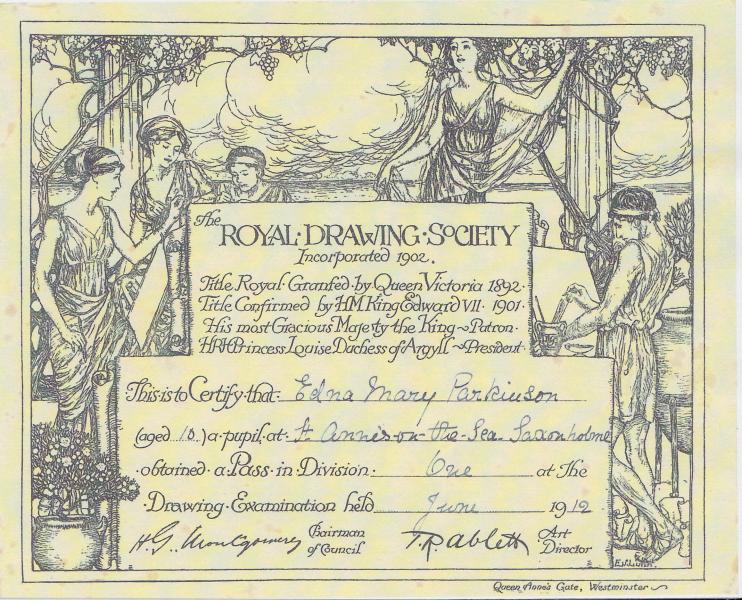 The
ROYAL·DRAWING·SOCIETY
Incorporated 1902.
Title Royal Granted by Queen Victoria 1892·
Title Confirmed by H.M. King Edward VII· 1901·
His most Gracious Majesty the King ~ Patron·
HRH Princess Louise Duchess of Argyll ~ President·
This is to Certify that: Edna Mary Parkinson
(aged 10.) a pupil at: St Anne's-on-the-Sea Saxonholme
obtained a Pass in Division: One at The
Drawing Examination held June 1912
H G. Montgomery Chairman of Council T.R. Ablett Art Director
Queen Anne's Gate, Westminster